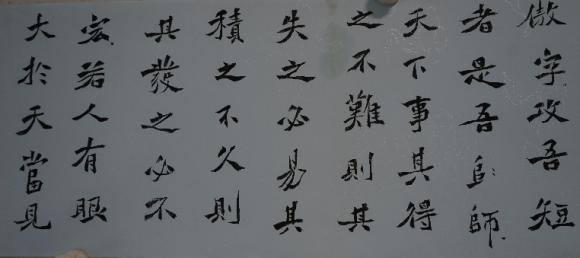 傲字攻吾短
者是吾師
天下事其得
之不難則其
失之必易其
積之不久則
其發之必不
宏若人有眼
大於天當見